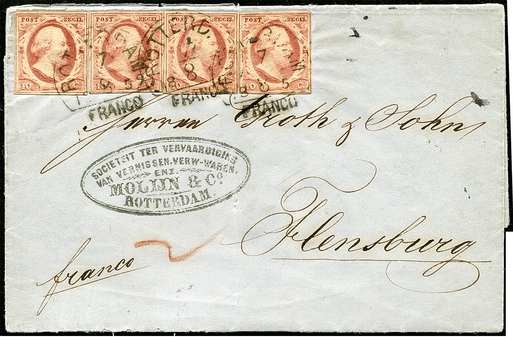 POST ZEGEL POST ZEGEL POST ZEGEL POST ZEGEL
ROTTERD.
FRANCO FRANCO FRANCO
Herren Roth & Sohn
SOCIETEIT TER VERVAARDIGING
VAN VERNISSEN, VERW-WAREN,
ENZ.
MOLIJN & Co.
ROTTERDAM.
Flensburg
franco